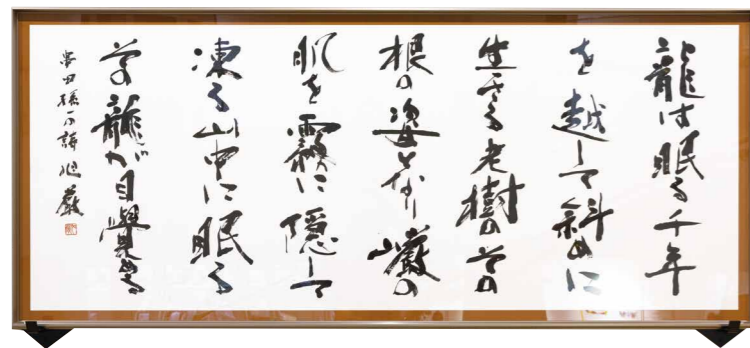 龍は眠る千年
を越して斜めに
生きる老樹の苔の
根の姿となり巌の
肌を霧に隠して
凍る山中に眠る
苔の龍が目覺める
串田孫一詩 旭巌